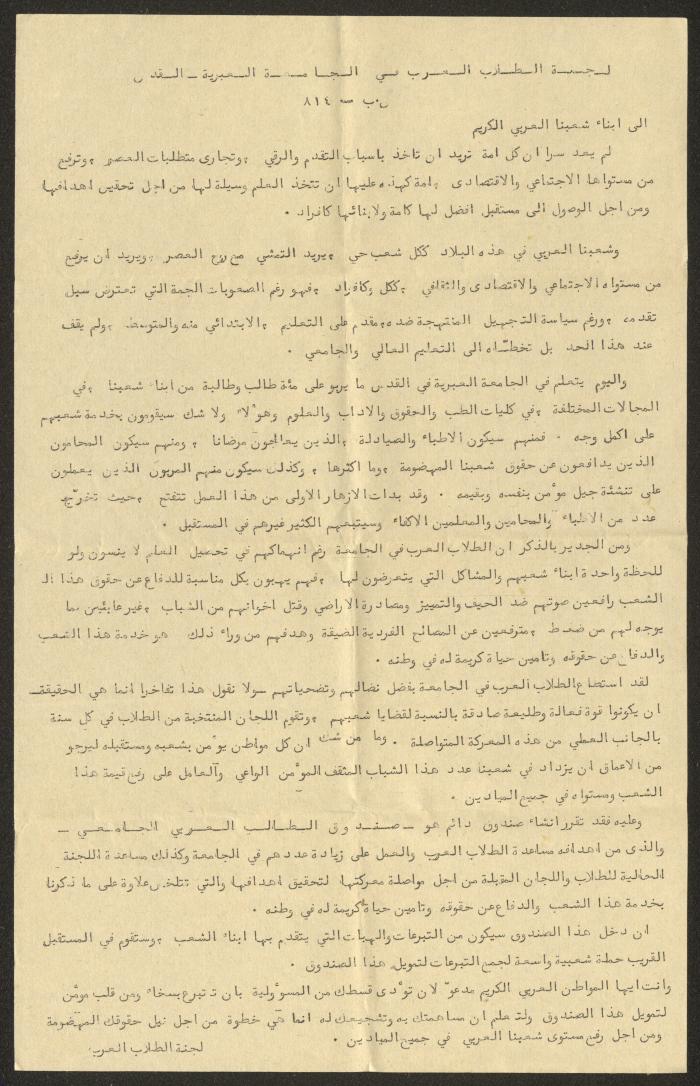 لجنة الطلاب العرب في الجامعة العبرية - القدس
ص.ب ٨١٤
الى ابناء شعبنا العربي الكريم
لم يعد سرا ان كل امة تريد ان تاخذ باسباب التقدم والرقي ، وتجارى متطلبات العصر ، وترفع
من مستواها الاجتماعي والاقتصادى ، امة كهذه عليها ان تتخذ العلم وسيلة لها من اجل تحقيق اهدافها
ومن اجل الوصول الى مستقبل افضل لها كامة ولابنائها كافراد .
وشعبنا العربي في هذه البلاد ككل شعب حي ، يريد التمشي مع روح العصر ، ويريد ان يرفع
من مستواه الاجتماعي والاقتصادى والثقافي ، ككل وكافراد ، فهو رغم الصعوبات الجمة التي تعترض سبيل
تقدمه ، ورغم سياسة التجهيل المنتهجة ضده ، مقدم على التعليم ، الابتدائي منه والمتوسط ، ولم يقف
عند هذا الحد بل تخطّاه الى التعليم العالي والجامعي .
واليوم يتعلم في الجامعة العبرية في القدس ما يربو على مئة طالب وطالبة من ابناء شعبنا ، في
المجالات المختلفة ، في كليات الطب والحقوق والاداب والعلوم وهؤلاء ولا شك سيقومون بخدمة شعبهم
على اكمل وجه . فمنهم سيكون الاطباء والصيادلة ، الذين يعالجون مرضانا ، ومنهم سيكون المحامون
الذين يدافعون عن حقوق شعبنا المهضومة ، وما اكثرها ، وكذلك سيكون منهم المربون الذين يعملون
على تنشئة جيل مؤمن بنفسه وبقيمه . وقد بدات الازهار الاولى من هذا العمل تتفتح ، حيث تخرّج
عدد من الاطباء والمحامين والمعلمين الاكفاء وسيتبعهم الكثير غيرهم في المستقبل .
ومن الجدير بالذكر ان الطلاب العرب في الجامعة رغم انهماكهم في تحصيل العلم لا ينسون ولو
للحظة واحدة ابناء شعبهم والمشاكل التي يتعرضون لها ، فهم يهبون بكل مناسبة للدفاع عن حقوق هذا الـ
الشعب رافعين صوتهم ضد الحيف والتمييز ومصادرة الاراضي وقتل اخوانهم من الشباب ، غير عابئين بما
يوجه لهم من ضغط ، مترفعين عن المصالح الفردية الضيقة وهدفهم من وراء ذلك هو خدمة هذا الشعب
والدفاع عن حقوقه وتامين حياة كريمة له في وطنه .
لقد استطاع الطلاب العرب في الجامعة بفضل نضالهم وتضحياتهم - ولا نقول هذا تفاخرا انما هي الحقيقة -
ان يكونوا قوة فعالة وطليعة صادقة بالنسبة لقضايا شعبهم ، وتقوم اللجان المنتخبة من الطلاب في كل سنة
بالجانب العملي من هذه المعركة المتواصلة . وما من شك ان كل مواطن يؤمن بشعبه ومستقبله ليرجو
من الاعماق ان يزداد في شعبنا عدد هذا الشباب المثقف المؤمن الواعي والعامل على رفع قيمة هذا
الشعب ومستواه في جميع الميادين .
وعليه فقد تقرر انشاء صندوق دائم هو - صندوق الطالب العربي الجامعي -
والذى من اهدافه مساعدة الطلاب العرب والعمل على زيادة عددهم في الجامعة وكذلك مساعدة اللجنة
الحالية للطلاب واللجان المقبلة من اجل مواصلة معركتها لتحقيق اهدافها والتي تتلخص علاوة على ما ذكرنا
بخدمة هذا الشعب والدفاع عن حقوقه وتامين حياة كريمة له في وطنه .
ان دخل هذا الصندوق سيكون من التبرعات والهبات التي يتقدم بها ابناء الشعب ، وستقوم في المستقبل
القريب حملة شعبية واسعة لجمع التبرعات لتمويل هذا الصندوق .
وانت ايها المواطن العربي الكريم مدعوّ لان تؤدى قسطك من المسؤولية بان تتبرع بسخاء ومن قلب مؤمن
لتمويل هذا الصندوق ولتعلم ان مساهمتك به وتشجيعك له انما هي خطوة من اجل نيل حقوقك المهضومة
ومن اجل رفع مستوى شعبنا العربي في جميع الميادين .
لجنة الطلاب العرب